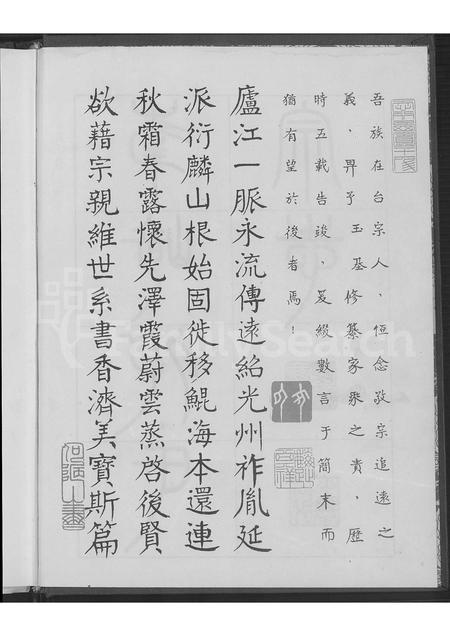 吾族在台宗人,恒念敬宗追遠之
義,畀予玉基修纂家乘之責,歷
時五載告竣,爰綴數言于簡末而
猶有望於後者焉!
廬江一脈永流傳遠紹光州祚胤延
派衍麟山根始固徙移鯤海本還連
秋霜春露懷先澤霞蔚雲蒸啓後賢
欲藉宗親維世系書香濟美寶斯篇
FamilySearch